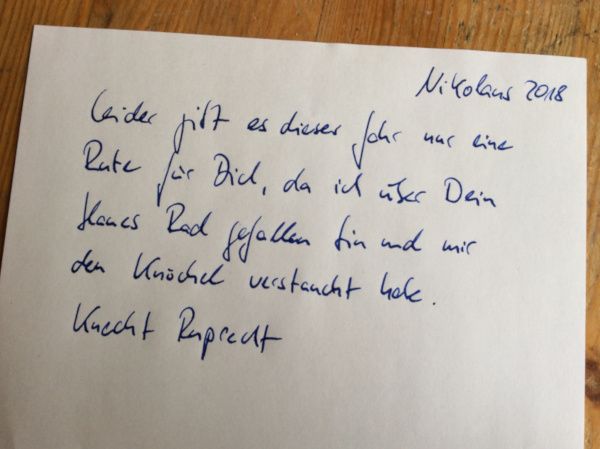 Nikolaus 2018
Leider gibt es dieses Jahr nur eine
Rute für Dich, da ich über Dein
blaues Rad gefallen bin und mir
den Knöchel verstaucht habe.
Knecht Ruprecht